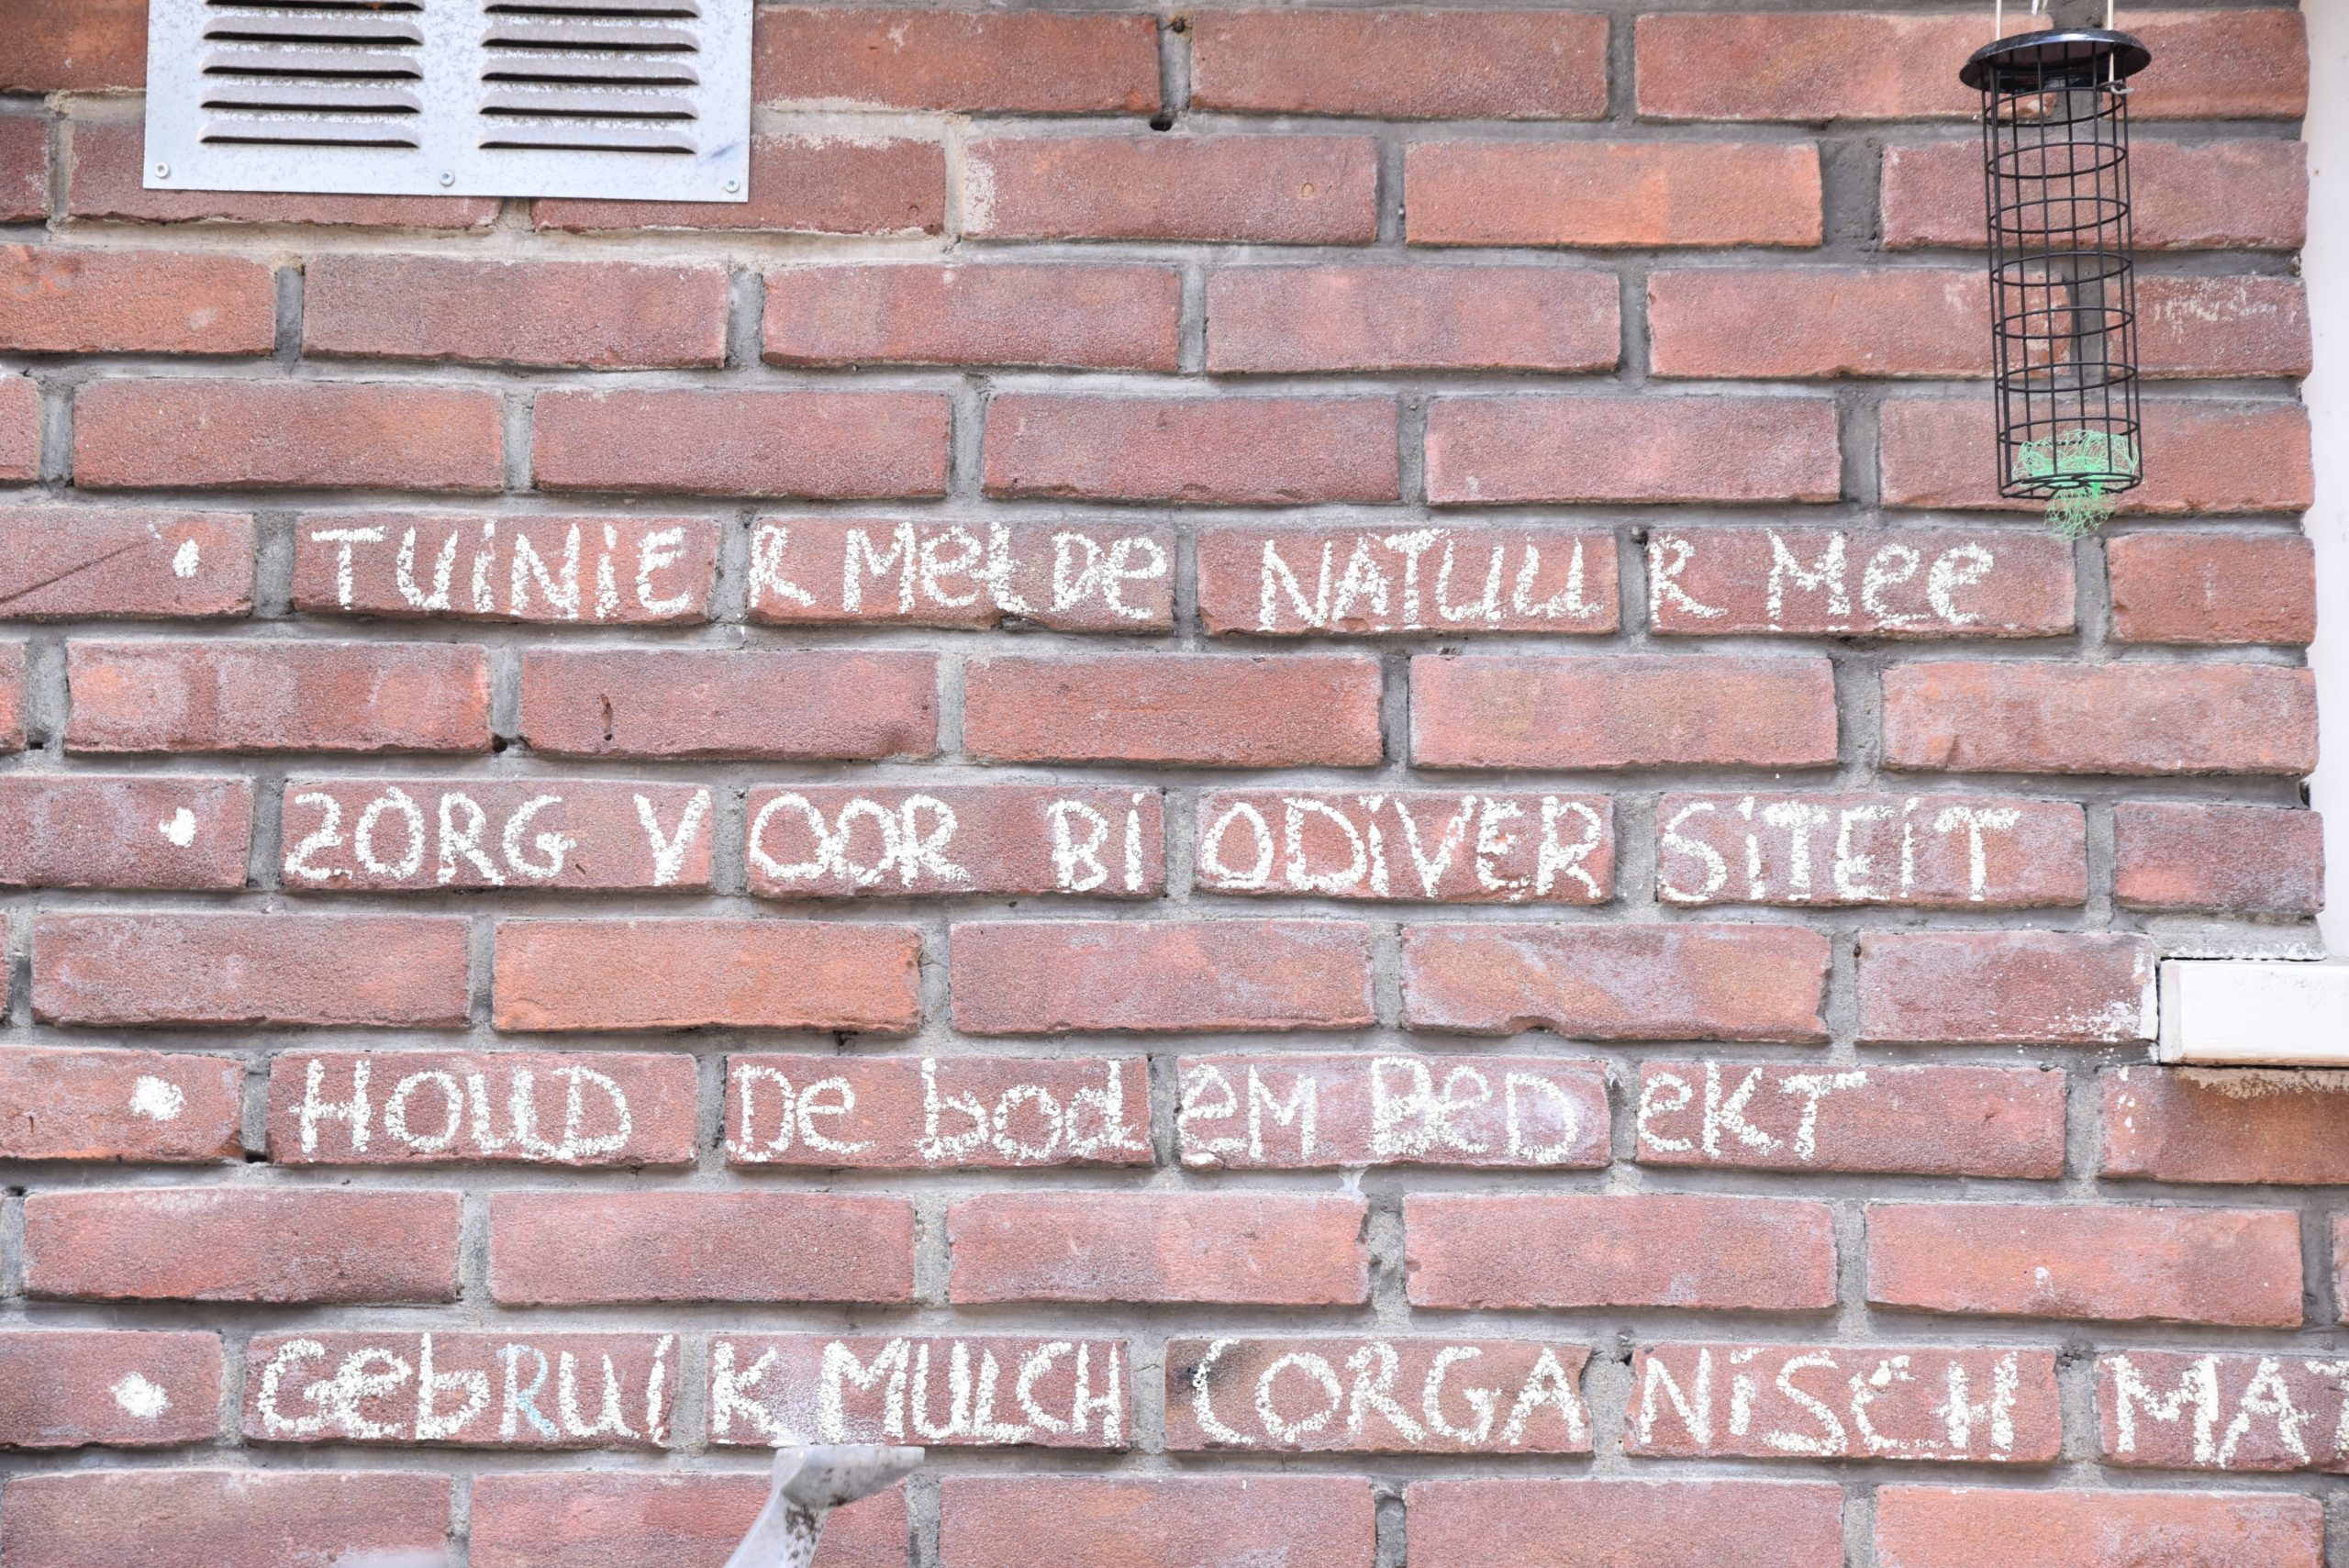 • TUiNiER MET DE NATUUR Mee
• ZORG VOOR BiODiVERSiTEiT
• HOUD De bodeM BeDeKT
• GebRUiK MULCH (ORGANiSCH MAT